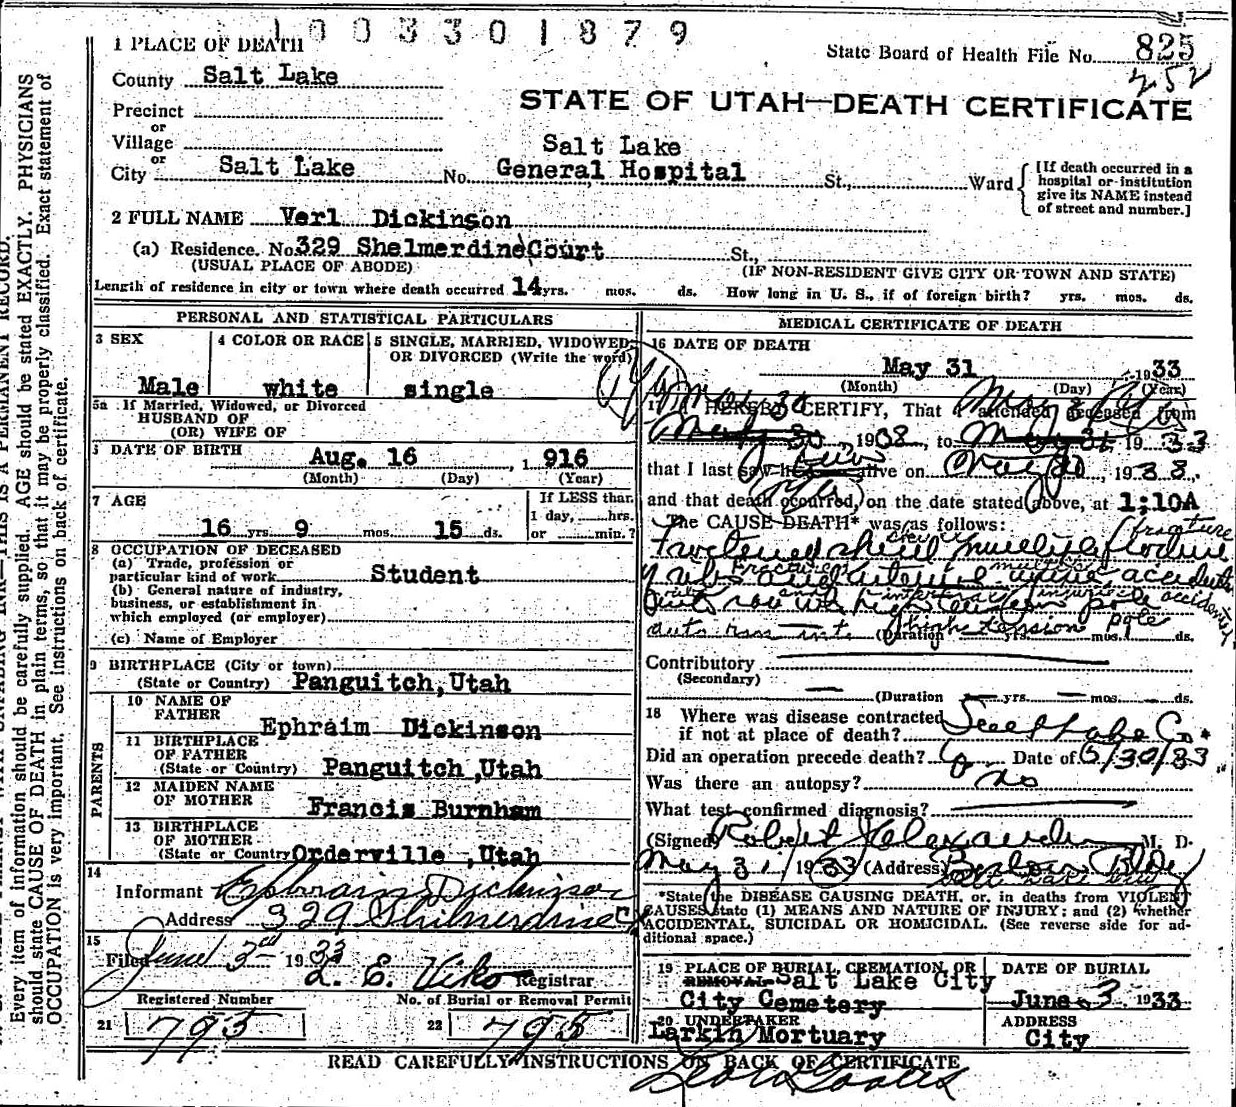 1003301879
1 PLACE OF DEATH
State Board of Health File No. 825
252
County Salt Lake
STATE OF UTAH—DEATH CERTIFICATE
Precinct
or
Village
or
City Salt Lake No. Salt Lake General Hospital St., Ward
[If death occurred in a
hospital or institution
give its NAME instead
of street and number.]
2 FULL NAME Verl Dickinson
(a) Residence. No. 329 Shelmerdine Court St.,
(USUAL PLACE OF ABODE) (IF NON-RESIDENT GIVE CITY OR TOWN AND STATE)
Length of residence in city or town where death occurred 14 yrs. mos. ds. How long in U. S., if of foreign birth? yrs. mos. ds.
PERSONAL AND STATISTICAL PARTICULARS
3 SEX
Male
4 COLOR OR RACE
white
5 SINGLE, MARRIED, WIDOWED,
OR DIVORCED (Write the word)
single
5a If Married, Widowed, or Divorced
HUSBAND OF
(OR) WIFE OF
DATE OF BIRTH
Aug. 16, 1916
(Month) (Day) (Year)
7 AGE
16 yrs. 9 mos. 15 ds.
If LESS than
1 day, hrs.
or min.?
8 OCCUPATION OF DECEASED
(a) Trade, profession or
particular kind of work Student
(b) General nature of industry,
business, or establishment in
which employed (or employer)
(c) Name of Employer
9 BIRTHPLACE (City or town)
(State or Country) Panguitch, Utah
PARENTS
10 NAME OF
FATHER Ephraim Dickinson
11 BIRTHPLACE
OF FATHER
(State or Country) Panguitch, Utah
12 MAIDEN NAME
OF MOTHER Francis Burnham
13 BIRTHPLACE
OF MOTHER
(State or Country) Orderville, Utah
14
Informant Ephraim Dickinson
Address 329 Shelmerdine Ct
15
Filed June 3rd 1933
L. E. Viko Registrar
Registered Number
21 795
No. of Burial or Removal Permit
22 795
MEDICAL CERTIFICATE OF DEATH
16 DATE OF DEATH
May 31 1933
(Month) (Day) (Year)
17 I HEREBY CERTIFY, That I attended deceased from
May 30, 1933, to May 31 1933
that I last saw h alive on May 30, 1933,
and that death occurred, on the date stated above, at 1;10A
The CAUSE DEATH* was as follows:
auto ran into high tension pole
(Duration yrs. mos. ds.
Contributory
(Secondary)
(Duration yrs. mos. ds.
18 Where was disease contracted
if not at place of death? Salt Lake Co*
Did an operation precede death? Date of 5/30/33
Was there an autopsy? no
What test confirmed diagnosis?
(Signed) Robert Alexander M. D.
May 31, 1933 (Address)
Salt Lake City
*State the DISEASE CAUSING DEATH, or, in deaths from VIOLENT
CAUSES state (1) MEANS AND NATURE OF INJURY; and (2) whether
ACCIDENTAL, SUICIDAL OR HOMICIDAL. (See reverse side for ad-
ditional space.)
19 PLACE OF BURIAL, CREMATION, OR
REMOVAL Salt Lake City
City Cemetery
DATE OF BURIAL
June 3, 1933
20 UNDERTAKER
Larkin Mortuary
ADDRESS
City
READ CAREFULLY INSTRUCTIONS ON BACK OF CERTIFICATE
Every item of information should be carefully supplied. AGE should be stated EXACTLY. PHYSICIANS
should state CAUSE OF DEATH in plain terms, so that it may be properly classified. Exact statement of
OCCUPATION is very important. See instructions on back of certificate.
THIS IS A PERMANENT RECORD.